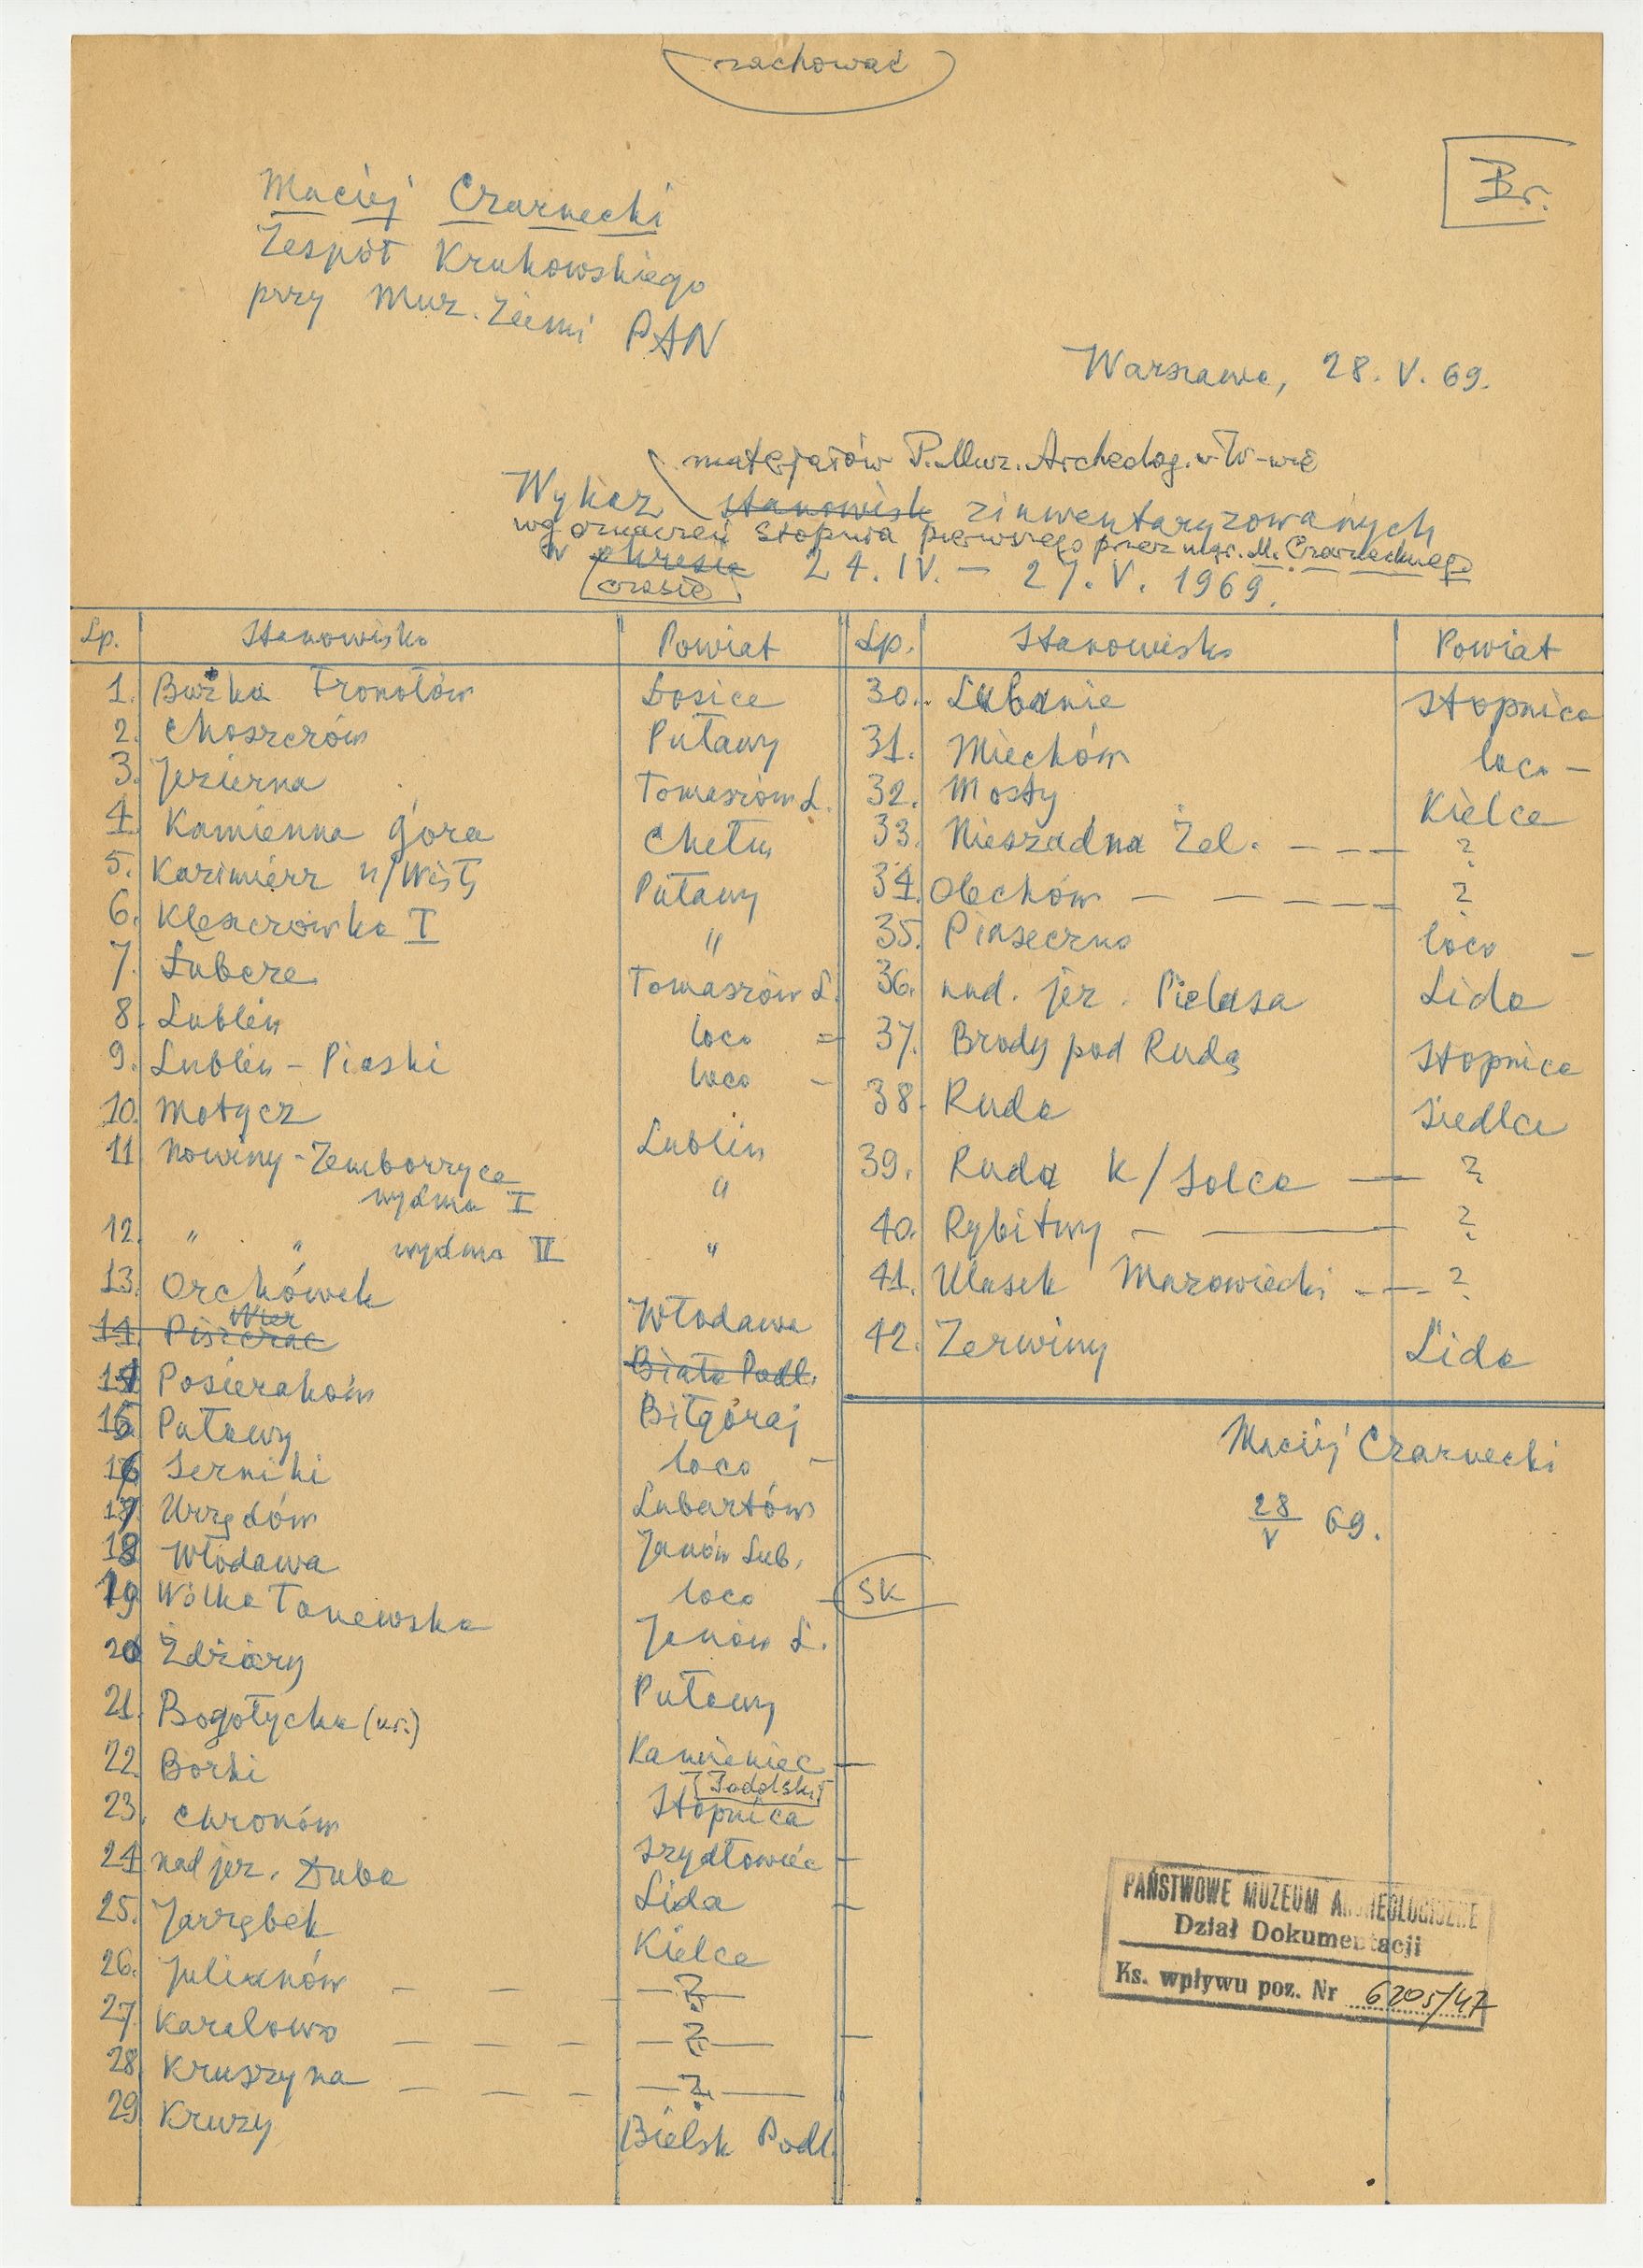 zachować
Br.
Maciej Czarnecki
Zespół Krukowskiego
przy Muz. Ziemi PAN
Warszawa, 28. V. 69.
materjałów P. Muz. Archeolog. w W-wie
Wykaz stanowisk zinwentaryzowanych
wg oznaczeń stopnia pierwszego przez mgr. M. Czarneckiego
w okresie 24. IV. — 27. V. 1969.
czasie
Lp. Stanowisko Powiat
1. Bużka Fronołów Łosice
2. Choszczów Puławy
3. Jezierna Tomaszów L.
4. Kamienna góra Chełm
5. Kazimierz n/Wisłą Puławy
6. Klęszczówka I "
7. Łubcze Tomaszów L.
8. Lublin loco =
9. Lublin - Piaski loco -
10. Motycz Lublin
11 Nowiny - Zemborzyce
wydma I "
12. " " wydma II "
13. Orchówek Włodawa
Wier
14. Piszczac Biała Podl.
14 Posieraków Biłgoraj
15 Puławy loco -
16 Serniki Lubartów
17 Urzędów Janów Lub.
18 Włodawa loco -
19 Wólka Tanewska Janów L.
20 Żdżary Puławy
21. Bogotycha (ur.) Kamieniec —
[Podolski]
22. Borki Stopnica
23. Chronów Szydłowiec —
24 nad jez. Duba Lida —
25. Jarząbek Kielce
26. Julianów — — — ? —
27. Karalowo — — — — ? — —
28. Kruszyna — — — — ? —
29 Kruzy Bielsk Podl.
Lp. Stanowisko Powiat
30. Lubanie Stopnica
31. Miechów loco —
32. Mosty Kielce
33. Nieszadna Żel. - — — ?
34. Olechów — — — — — ?
35. Piaseczno loco —
36. nad. jez. Pielasa Lida
37. Brody pod Rudą Stopnica
38. Ruda Siedlce
39. Ruda K/Solca — ?
40. Rybitwy — — ?
41. Ulasek Mazowiecki - — ?
42. Zerwiny Lida
Maciej Czarnecki
28/V 69.
SK
PAŃSTWOWE MUZEUM ARCHEOLOGICZNE
Dział Dokumentacji
Ks. wpływu poz. Nr 6205/47